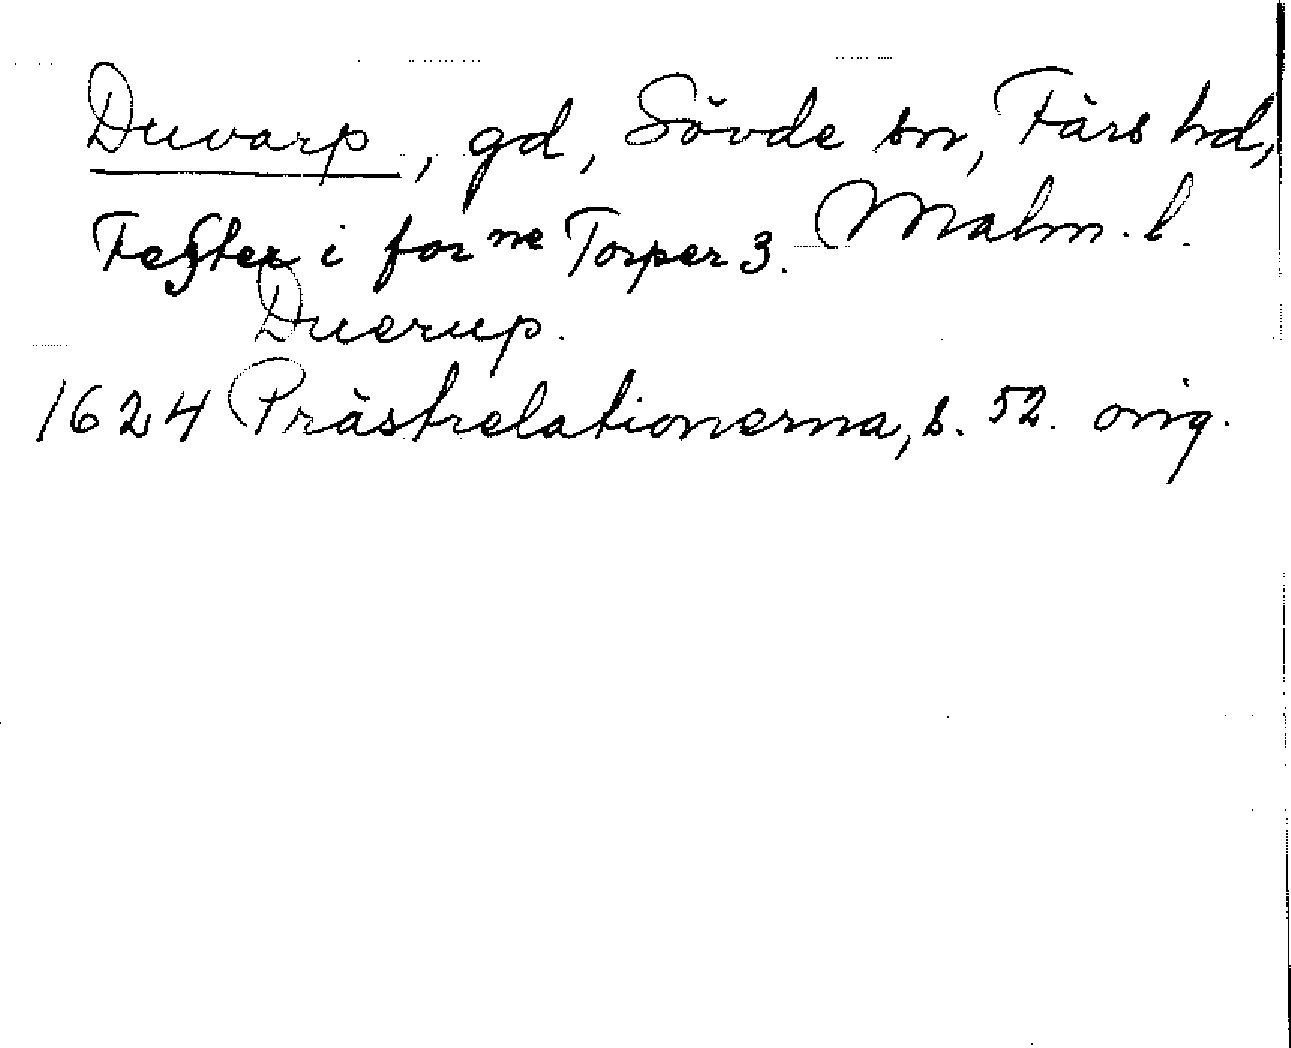 Duvarp, gd, Sövde sn, Färs hd,
Malm. l.
Fester i for ne Torper 3.
Duerup.
1624 Prästrelationerna, s. 52. orig.